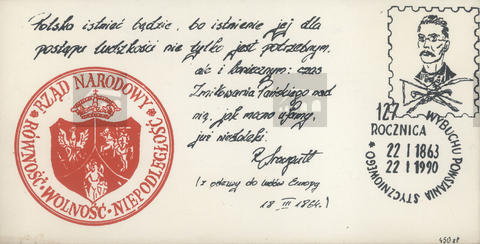 Polska istnieć będzie, bo istnienie jej dla
postępu ludzkości nie tylko jest potrzebnym,
ale i koniecznym: czas
Zmiłowania Pańskiego nad
nią, jak mamo ufamy,
już niedaleki.
R Traugutt
(z odezwy do ludów Europy
18 III 1864.)
RZĄD NARODOWY
RÓWNOŚĆ * WOLNOŚĆ * NIEPODLEGŁOŚĆ
127
ROCZNICA
WYBUCHU POWSTANIA STYCZNIOWEGO
22 I 1863
22 I 1990
450 zł